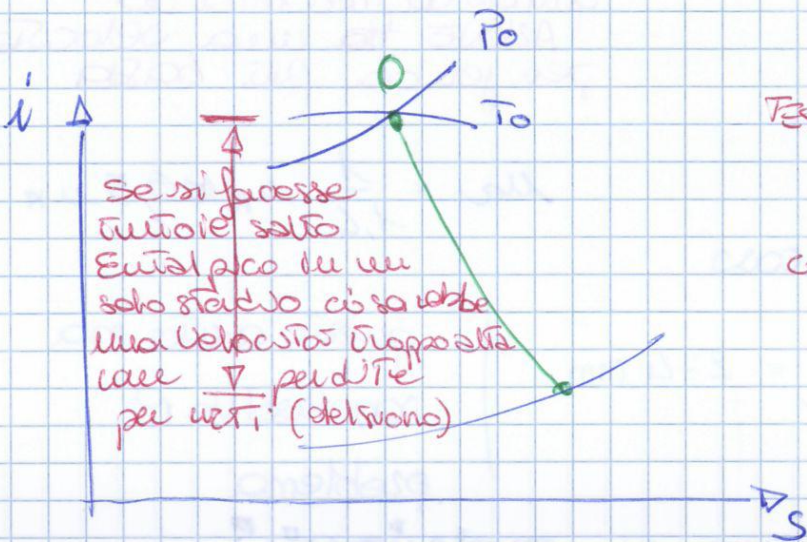 Po
O
i
To
Se si facesse
tutto il salto
Entalpico in un
solo stadio ci sarebbe
una velocità troppo alta
con perdite
per urti (del suono)
S